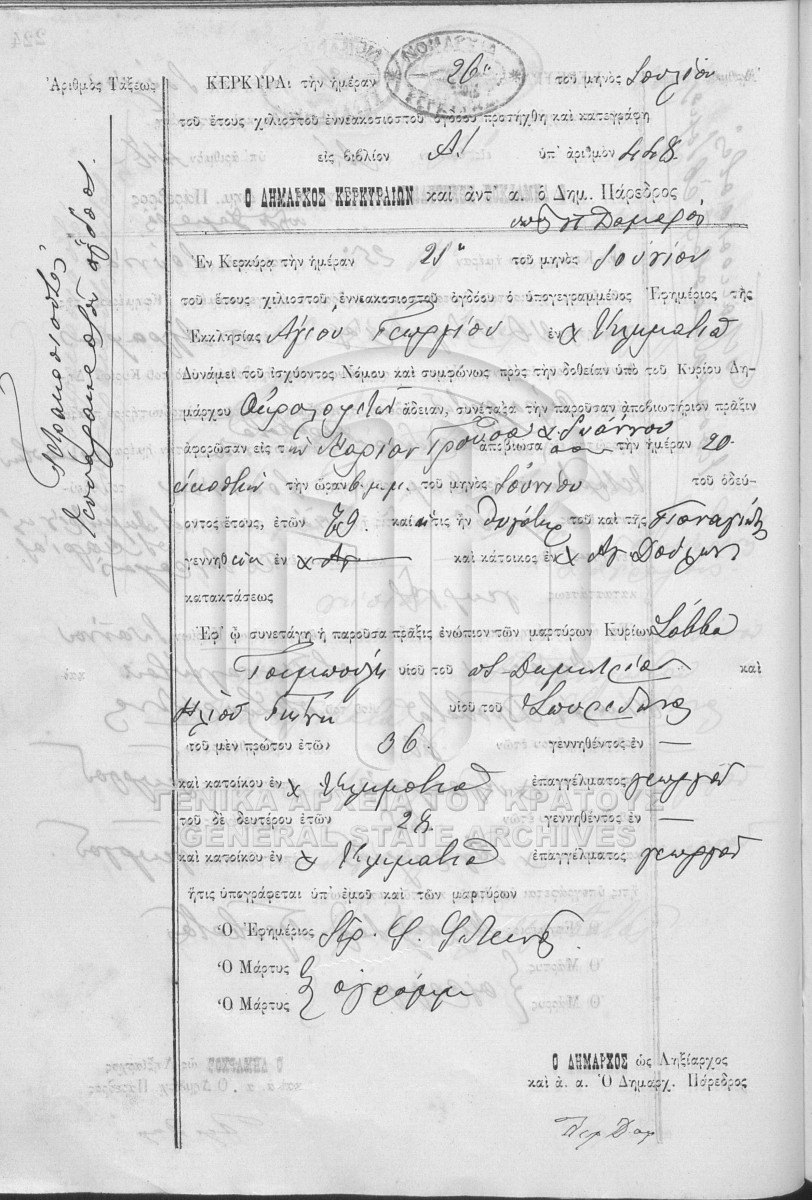 Ἀριθμὸς Τάξεως
Τετρακοσιοστὸς
Τεσσαρακοστὸς ὄγδοος.
ΝΟΜΑΡΧΙΑ
ΚΕΡΚΥΡΑι τὴν ἡμέραν 26ην τοῦ μηνὸς Ἰουλίου
τοῦ ἔτους χιλιοστοῦ ἐννεακοσιοστοῦ ὀγδόου προσήχθη καὶ κατεγράφη
εἰς βιβλίον Α! ὑπ' ἀριθμὸν 448.
Ο ΔΗΜΑΡΧΟΣ ΚΕΡΚΥΡΑΙΩΝ καὶ ἀντ' α. ὁ Δημ. Πάρεδρος
Ἐν Κερκύρᾳ τὴν ἡμέραν 21ην τοῦ μηνὸς Ἰουνίου
τοῦ ἔτους χιλιοστοῦ ἐννεακοσιοστοῦ ὀγδόου ὁ ὑπογεγραμμένος Ἐφημέριος τῆς
Ἐκκλησίας Ἁγίου Γεωργίου ἐν χ Κληματιᾶ
Δυνάμει τοῦ ἰσχύοντος Νόμου καὶ συμφώνως πρὸς τὴν δοθεῖσαν ὑπὸ τοῦ Κυρίου Δη-
μάρχου ἄδειαν, συνέταξα τὴν παροῦσαν ἀποβιωτήριον πρᾶξιν
ἀφορῶσαν εἰς τὴν Μαρίαν χ Ἰωάννου ἀποβιώσασαν τὴν ἡμέραν 20
εἰκοστὴν τὴν ὥραν 6 μ.μ. τοῦ μηνὸς Ἰουνίου τοῦ ὁδεύ-
οντος ἔτους, ἐτῶν 79. καὶ ἥτις ἦν θυγάτηρ τοῦ καὶ τῆς Παναγιώτη
γεννηθ εῖσα ἐν χ Αγ καὶ κάτοικος ἐν χ Ἁγ Δούλων
κατακτάσεως
Ἐφ' ᾧ συνετάγη ἡ παροῦσα πρᾶξις ἐνώπιον τῶν μαρτύρων Κυρίων Σάββα
υἱοῦ τοῦ Δημητρίου καὶ
υἱοῦ τοῦ Σπυρίδωνος
τοῦ μὲν πρώτου ἐτῶν 36. γεννηθέντος ἐν —
καὶ κατοίκου ἐν χ Κληματιᾶ ἐπαγγέλματος γεωργοῦ
ΓΕΝΙΚΑ ΑΡΧΕΙΑ ΤΟΥ ΚΡΑΤΟΥΣ
τοῦ δὲ δευτέρου ἐτῶν 28. γεννηθέντος ἐν —
GENERAL STATE ARCHIVES
καὶ κατοίκου ἐν χ Κληματιᾶ ἐπαγγέλματος γεωργοῦ
ἥτις ὑπογράφεται ὑπ' ἐμοῦ καὶ τῶν μαρτύρων
Ὁ Ἐφημέριος
Ὁ Μάρτυς
Ὁ Μάρτυς ἀγράμμ
Ο ΔΗΜΑΡΧΟΣ ὡς Ληξίαρχος
καὶ ἀ. α. Ὁ Δημαρχ. Πάρεδρος